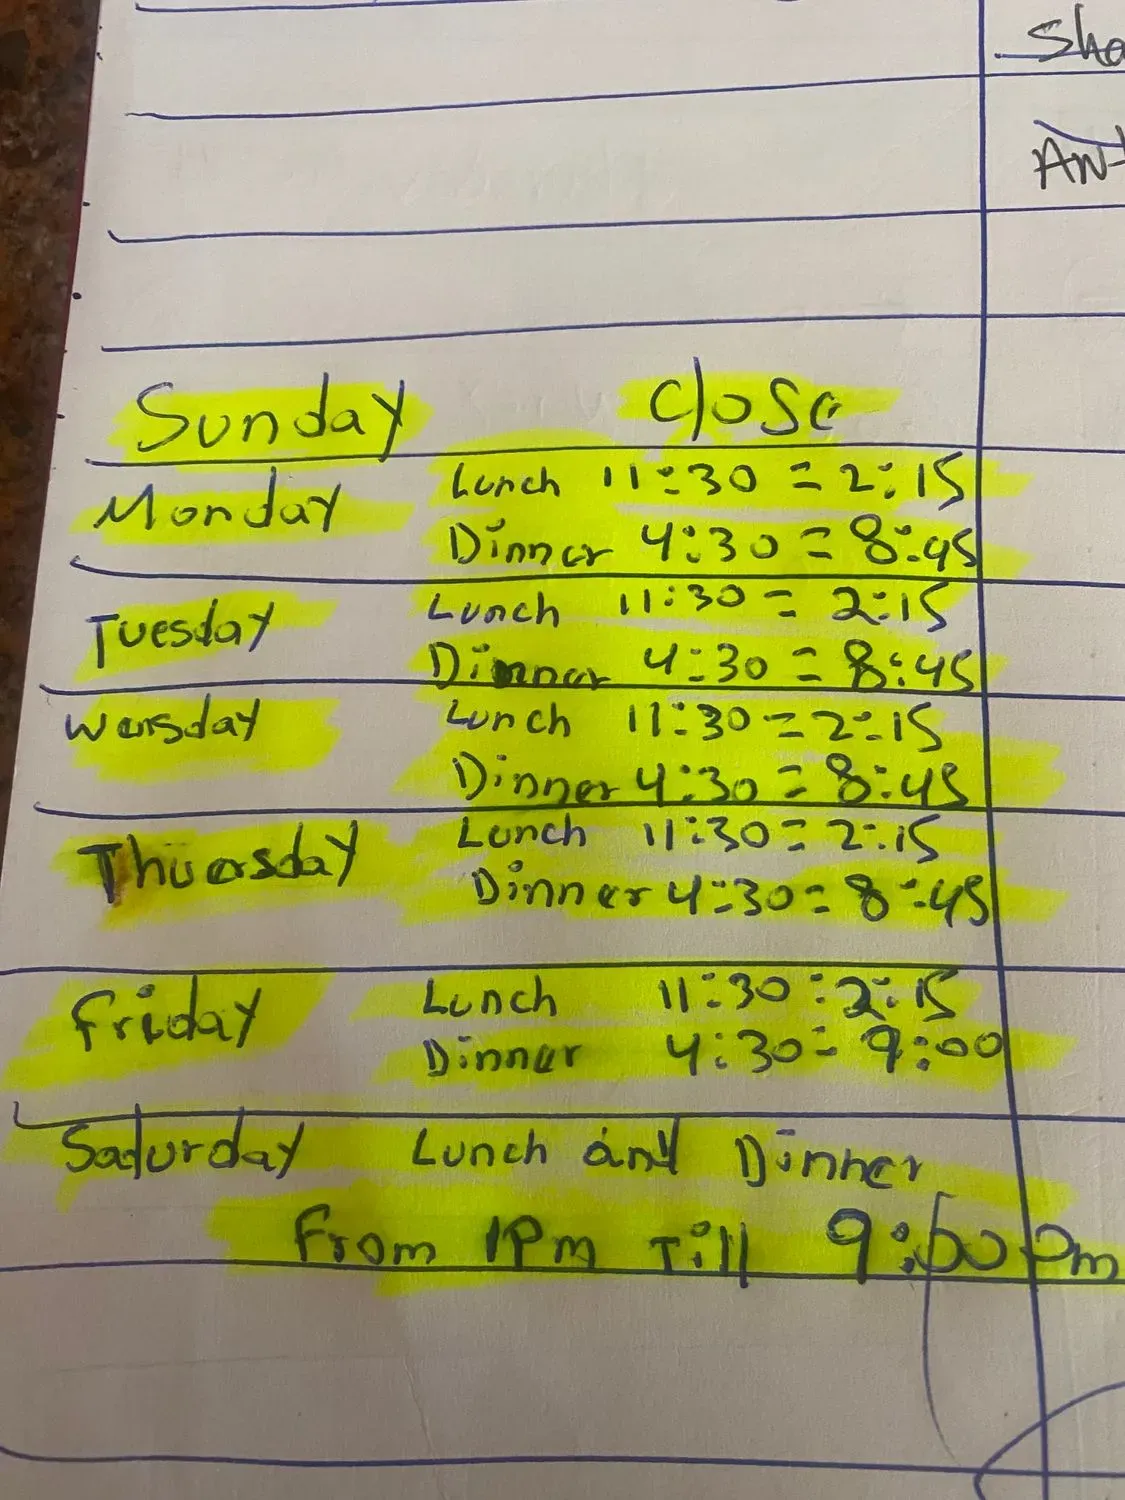 Sunday Close
Monday Lunch 11:30 = 2:15
Dinner 4:30 = 8:45
Tuesday Lunch 11:30 = 2:15
Dinner 4:30 = 8:45
Wensday Lunch 11:30 = 2:15
Dinner 4:30 = 8:45
Thuersday Lunch 11:30 = 2:15
Dinner 4:30 = 8:45
Friday Lunch 11:30 = 2:15
Dinner 4:30 = 9:00
Saturday Lunch and Dinner
From 1PM Till 9:00 Pm